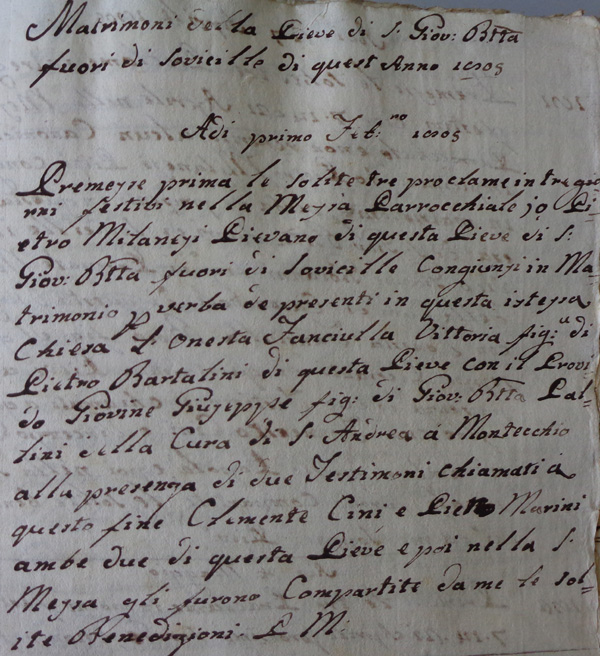 Matrimoni della Pieve di S. Giov: Btta
fuori di Sovicille di quest Anno 1805
Adi primo Feb:ro 1805
Premesse prima le solite tre proclame in tre gio
rni festivi nella Messa Parrocchiale io Pi=
etro Milanesi Pievano di questa Pieve di S.
Giov: Btta fuori di Sovicille Congiunsi in Ma=
trimonio p verba de presenti in questa istessa
Chiesa L' Onesta Fanciulla Vittoria fig:a di
Pietro Bartalini di questa Pieve con il Provi=
do Giovine Giuseppe fig: di Giov: Btta Pal=
lini della Cura di S. Andrea a Montecchio
alla presenza di due Testimoni chiamati a
questo fine Clemente Cini e Pietro Marini
ambe due di questa Pieve e poi nella S.
Messa gli furono Compartite da me le sol=
ite Benedizioni. P M: